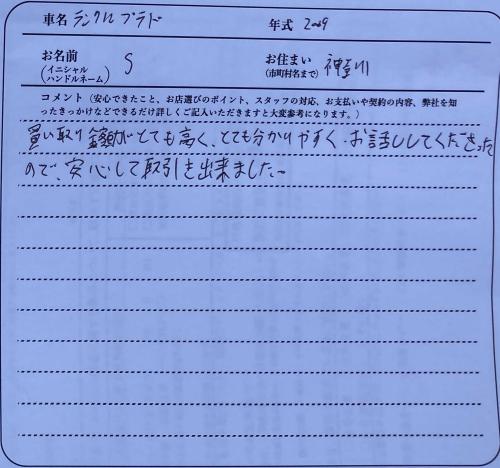 車名 ランクル プラド 年式 2009
お名前 (イニシャル ハンドルネーム) S お住まい (市町村名まで) 神奈川
コメント(安心できたこと、お店選びのポイント、スタッフの対応、お支払いや契約の内容、弊社を知
ったきっかけなどできるだけ詳しくご記入いただきますと大変参考になります。)
買い取り金額がとても高く、とても分かりやすく、お話ししてくださった
ので、安心して取引を出来ました。